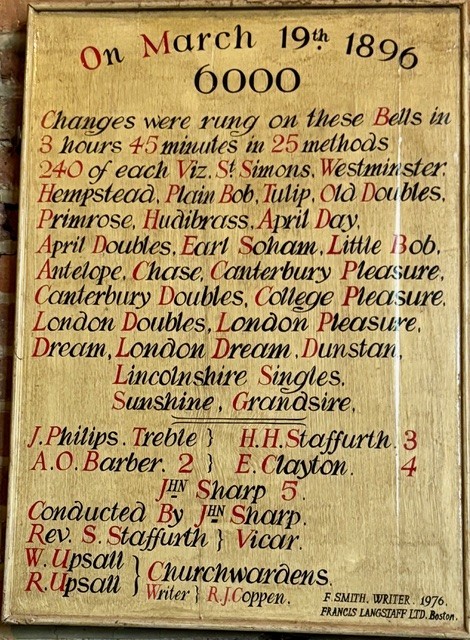 On March 19th 1896
6000
Changes were rung on these Bells in
3 hours 45 minutes in 25 methods
240 of each Viz. St Simons, Westminster.
Hempstead, Plain Bob, Tulip, Old Doubles,
Primrose, Hudibrass, April Day,
April Doubles, Earl Soham, Little Bob,
Antelope, Chase, Canterbury Pleasure,
Canterbury Doubles, College Pleasure,
London Doubles, London Pleasure,
Dream, London Dream, Dunstan,
Lincolnshire Singles,
Sunshine, Grandsire,
J. Philips. Treble } H.H. Staffurth. 3
A.O. Barber. 2 } E. Clayton. 4
JHN Sharp 5.
Conducted By JHN Sharp.
Rev. S. Staffurth } Vicar.
W. Upsall
R. Upsall } Churchwardens.
Writer } R.J. Coppen.
F. SMITH. WRITER. 1976.
FRANCIS LANGSTAFF LTD. Boston.